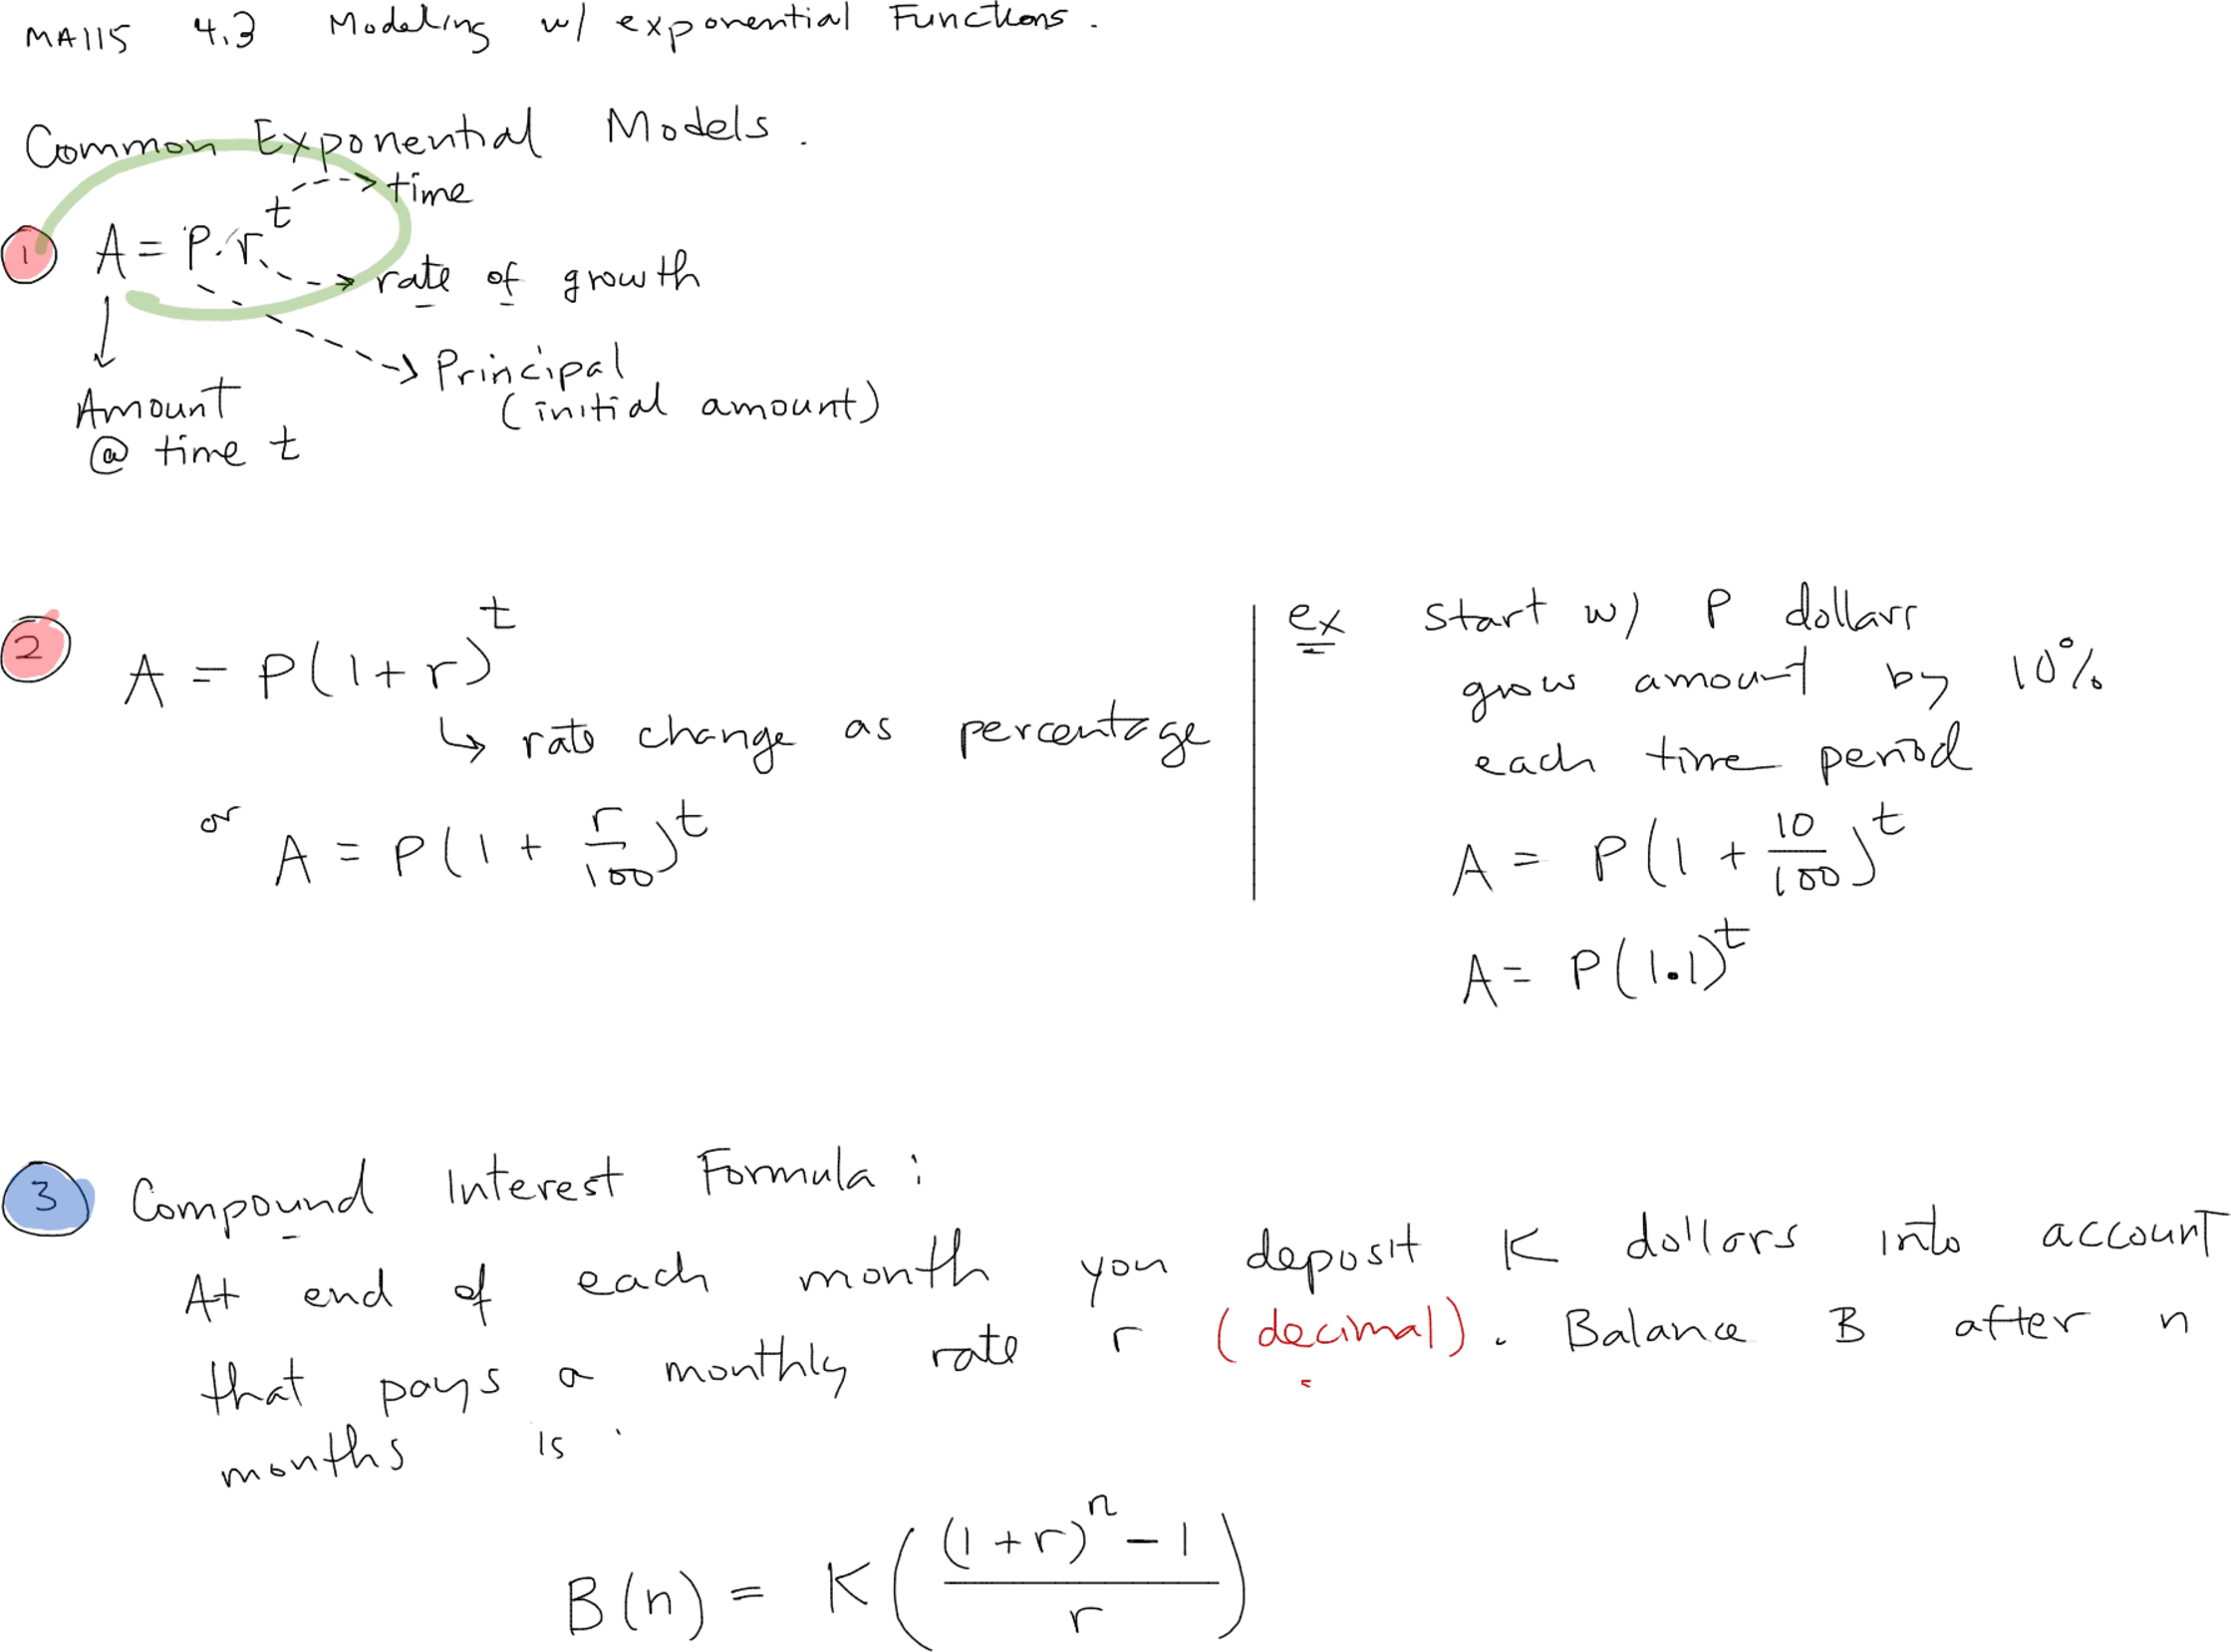 MA115 4.3 Modeling w/ exponential Functions.
Common Exponential Models.
1 A = P·r^t
time
rate of growth
Principal
(initial amount)
Amount
@ time t
2 A = P(1+r)^t
rate change as percentage
or A = P(1 + r/100)^t
ex start w/ P dollars
grow amount by 10%
each time period
A = P(1 + 10/100)^t
A = P(1.1)^t
3 Compound Interest Formula:
At end of each month you deposit K dollars into account
that pays a monthly rate r (decimal). Balance B after n
months is.
B(n) = K(((1+r)^n - 1)/r)